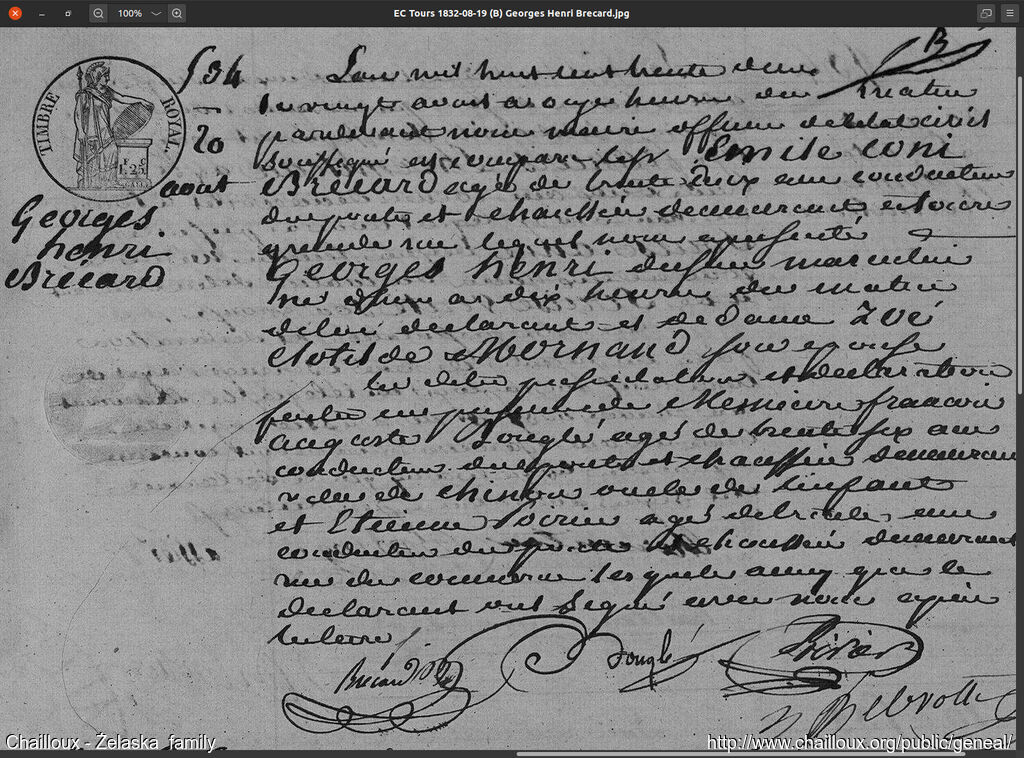 100%
EC Tours 1832-08-19 (B) Georges Henri Brecard.jpg
TIMBRE
ROYAL.
F. C
1.25.
B
534
20
aout
Georges
henri
Brecard
L'an mil huit cent trente deux
le vingt aout a onze heures du matin
pardevant nous maire officier de l'etat civil
soussigné est comparu le sr Emile
Brecard agé de trente deux ans conducteur
des ponts et chaussées demeurant a tours
grande rue lequel nous a presenté
Georges henri du sexe masculin
né d'hier a dix heures du matin
de lui declarant et de dame Zoé
Clotilde Mornand son epouse
les dites presentation et declaration
faites en presence de Messieurs francois
auguste Douglé agé de trente six ans
conducteur des ponts et chaussées demeurant
de chinon de l'enfant
et Etienne Poirier agé de trente ans
conducteur des ponts et chaussées demeurant
rue du commerce lesquels ainsi que le
declarant ont signé avec nous apres
lecture
Brécard
Douglé
Poirier
Chailloux - Żelaska family
http://www.chailloux.org/public/geneal/